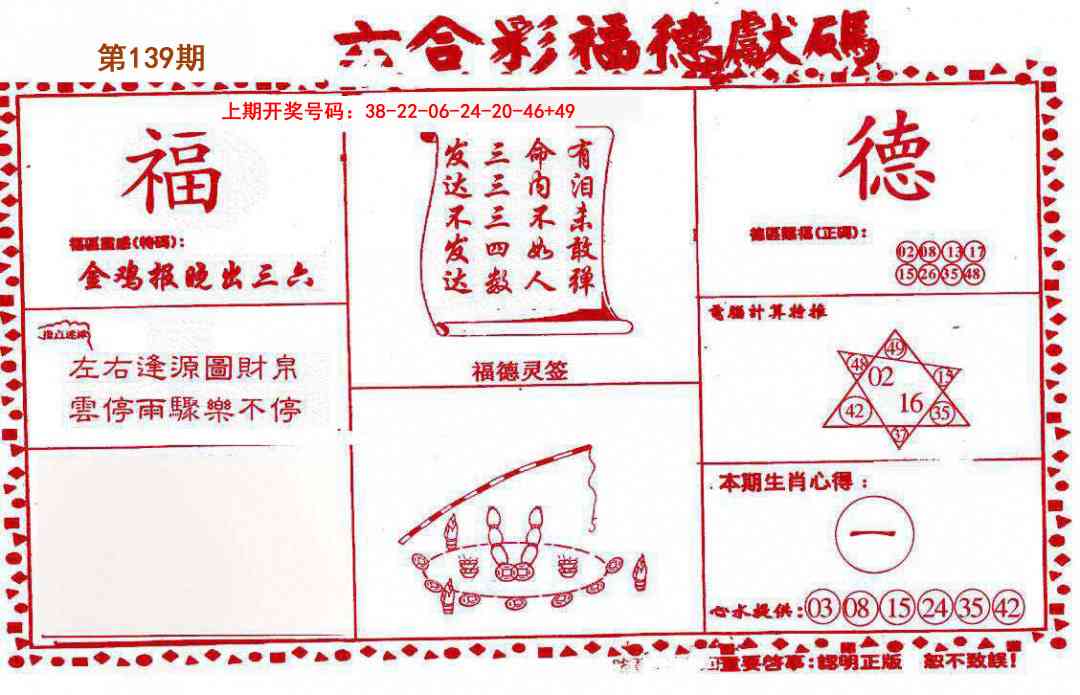 第139期
六合彩福德獻碼
上期开奖号码：38-22-06-24-20-46+49
福
福區靈感(特碼)：
金鸡报晚出三六
指点迷津
左右逢源圖財帛
雲停雨驟樂不停
有泪未敢弹
命内不如人
三三三四数
发达不发达
福德灵签
德
德區賜福(正碼)：
02 08 13 17
15 26 35 48
電腦計算特推
49
48 02 15
42 16 35
37
本期生肖心得：
一
心水提供：03 08 15 24 35 42
重要啓事：認明正版 恕不致誤！